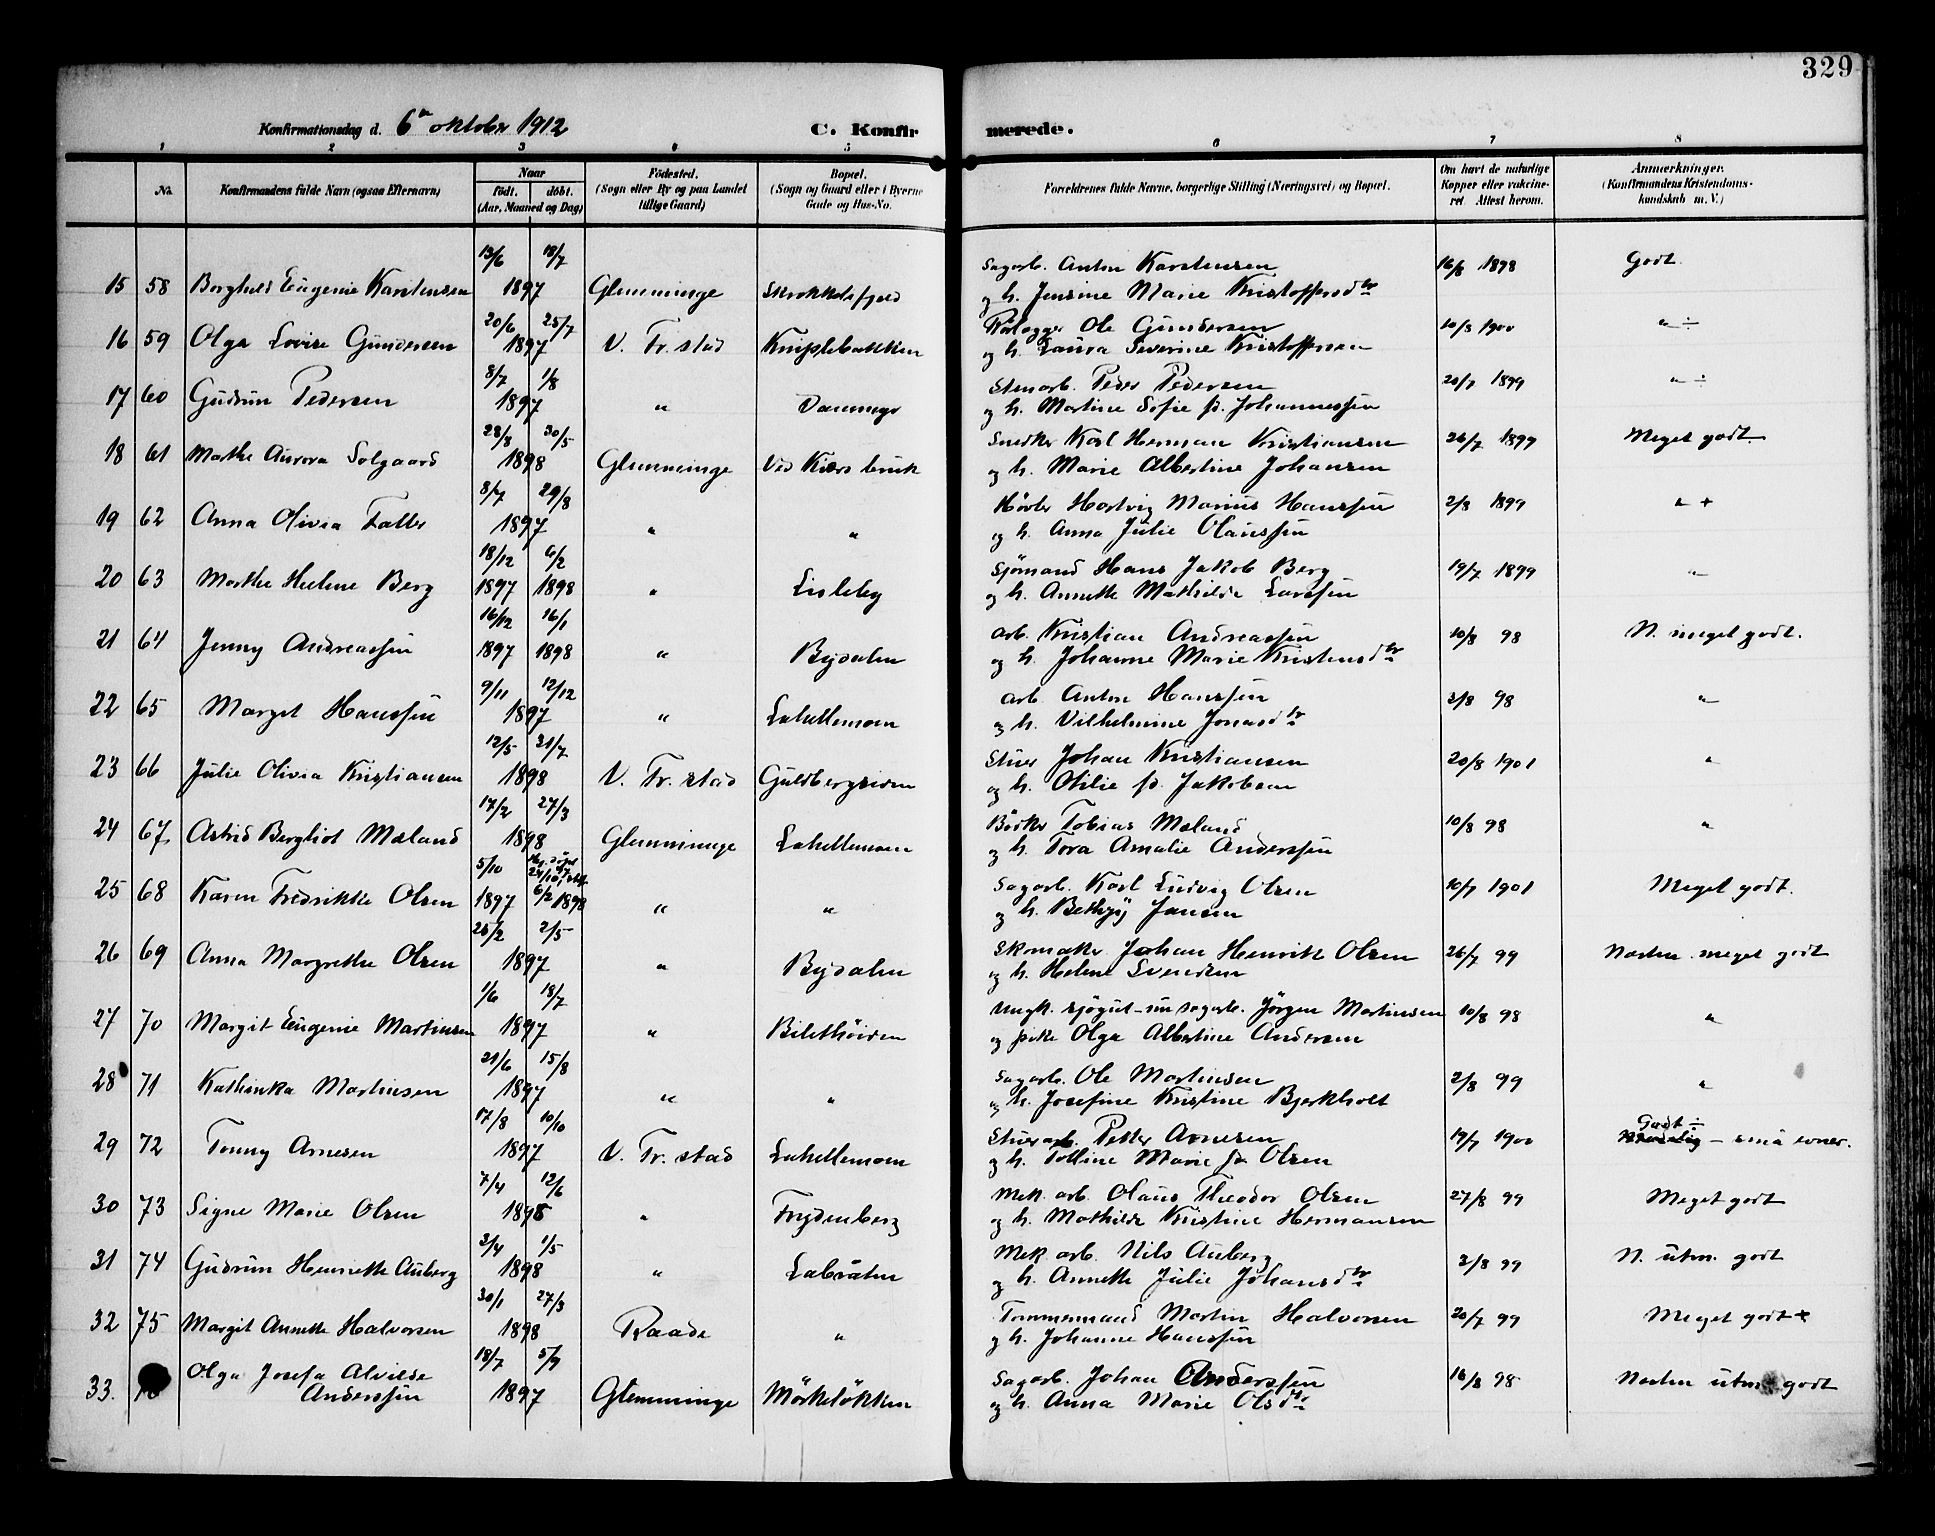 329
Konfirmationsdag d. 6te oktober 1912
C. Konfirmerede.
1 2 3 4 5 6 7 8
No. Konfirmandens fulde Navn (ogsaa Efternavn) Naar født. døbt. (Aar, Maaned og Dag) Fødested. (Sogn eller By og paa Landet tillige Gaard) Bopæl. (Sogn og Gaard eller i Byerne Gade og Hus-No. Forældrenes fulde Navne, borgerlige Stilling (Næringsvei) og Bopæl. Om havt de naturlige Kopper eller vakcineret. Attest herom. Anmærkninger. (Konfirmandens Kristendomskundskab m. V.)
13/6 18/7 Sagarb. Anton Karstensen 16/8 1898 Godt
15 58 Borghild Eugenie Karstensen 1897 Glemminge Skrokkelsfjeld og h. Jensine Marie Kristoffersdtr
20/6 25/7 Rørlegger Ole Gundersen 10/8 1900 " ÷
16 59 Olga Lovise Gundersen 1897 V. Fr.stad Kniplebakken og h. Laura Severine Kristoffersen
8/7 1/8 Stenarb. Peder Pedersen 20/7 1899 " ÷
17 60 Gudrun Pedersen 1897 " Dammyr og h. Martine Sofie f. Johannessen
28/3 30/5 Snedker Karl Herman Kristiansen 26/7 1899 Meget godt
18 61 Marthe Aurora Solgaard 1898 Glemminge Ved Kiærs bruk og h. Marie Albertine Johansen
8/7 29/8 Høvler Hartvig Marius Hanssen 2/8 1899 " +
19 62 Anna Olivia Faller 1897 " " og h. Anna Julie Olaussen
18/12 6/2 Sjømand Hans Jakob Berg 19/7 1899 "
20 63 Marthe Helene Berg 1897 1898 " Lisleby og h. Annette Mathilde Larssen
16/12 16/1 Arb. Kristian Andreassen 10/8 98 N. meget godt.
21 64 Jenny Andreassen 1897 1898 " Bydalen og h. Johanne Marie Kristensdtr
9/11 12/12 Arb. Anton Hanssen 2/8 98 "
22 65 Marget Hanssen 1897 " Lahellemoen og h. Vilhelmine Jonasdtr
12/5 21/7 Stuer Johan Kristiansen 20/8 1901 "
23 66 Julie Olivia Kristiansen 1898 V. Fr.stad Guldbergsiden og h. Otilie f. Jakobsen
17/2 27/3 Bødker Tobias Mæland 10/8 98 "
24 67 Astrid Bergliot Mæland 1898 Glemminge Lahellemoen og h. Tora Amalie Anderssen
5/10 6/2 1898 Sagarb. Karl Ludvig Olsen 10/7 1901 Meget godt.
25 68 Karen Fredrikke Olsen 1897 " " og h. Bethzy Jansen
25/2 2/5 Skomaker Johan Henrik Olsen 26/7 99 Næsten meget godt
26 69 Anna Margrethe Olsen 1897 " Bydalen og h. Helene Svendsen
1/6 18/7 Ungk. sjøgut - nu sagarb. Jørgen Martinsen 10/8 98 "
27 70 Margit Eugenie Martinsen 1897 " Bilethøiden og pike Olga Albertine Andersen
21/6 15/8 Sagarb. Ole Martinsen 2/8 99 "
28 71 Kathinka Martinsen 1897 " " og h. Josefine Kristine Bjerkholt
17/8 10/10 Stuerarb. Petter Arnesen 19/7 1900 Godt ÷ - små evner.
29 72 Tonny Arnesen 1897 V. Fr.stad Lahellemoen og h. Tolline Marie f. Olsen
7/4 12/6 Mek. arb. Olaus Theodor Olsen 27/8 99 Meget godt
30 73 Signe Marie Olsen 1898 " Frydenberg og h. Mathilde Kristine Hermansen
3/4 1/5 Mek. arb. Nils Auberg 2/8 99 N. utm. godt
31 74 Gudrun Henriette Auberg 1898 " Labråten og h. Annette Julie Johansdtr
30/1 27/3 Tømmermand Martin Halvorsen 20/7 99 Meget godt +
32 75 Margit Annette Halvorsen 1898 Raade " og h. Johanne Hanssen
Olga Josefa Alvilde 18/7 5/9 Sagarb. Johan Anderssen 16/8 98 Næsten utm. godt
33. Anderssen 1897 Glemminge Mørkeløkken og h. Anna Marie Olsdtr